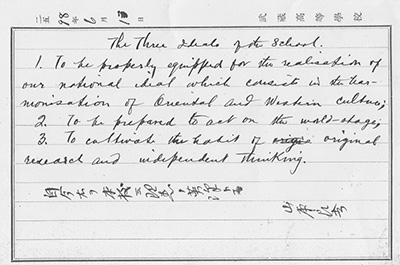 二五98年6月 日 武蔵高等學校
The Three Ideals of the School.
1. To be properly equipped for the realisation of
our national ideal which consists in the har-
monisation of Oriental and Western culture;
2. To be prepared to act on the world-stage;
3. To cultivate the habit of original
research and independent thinking.
山本